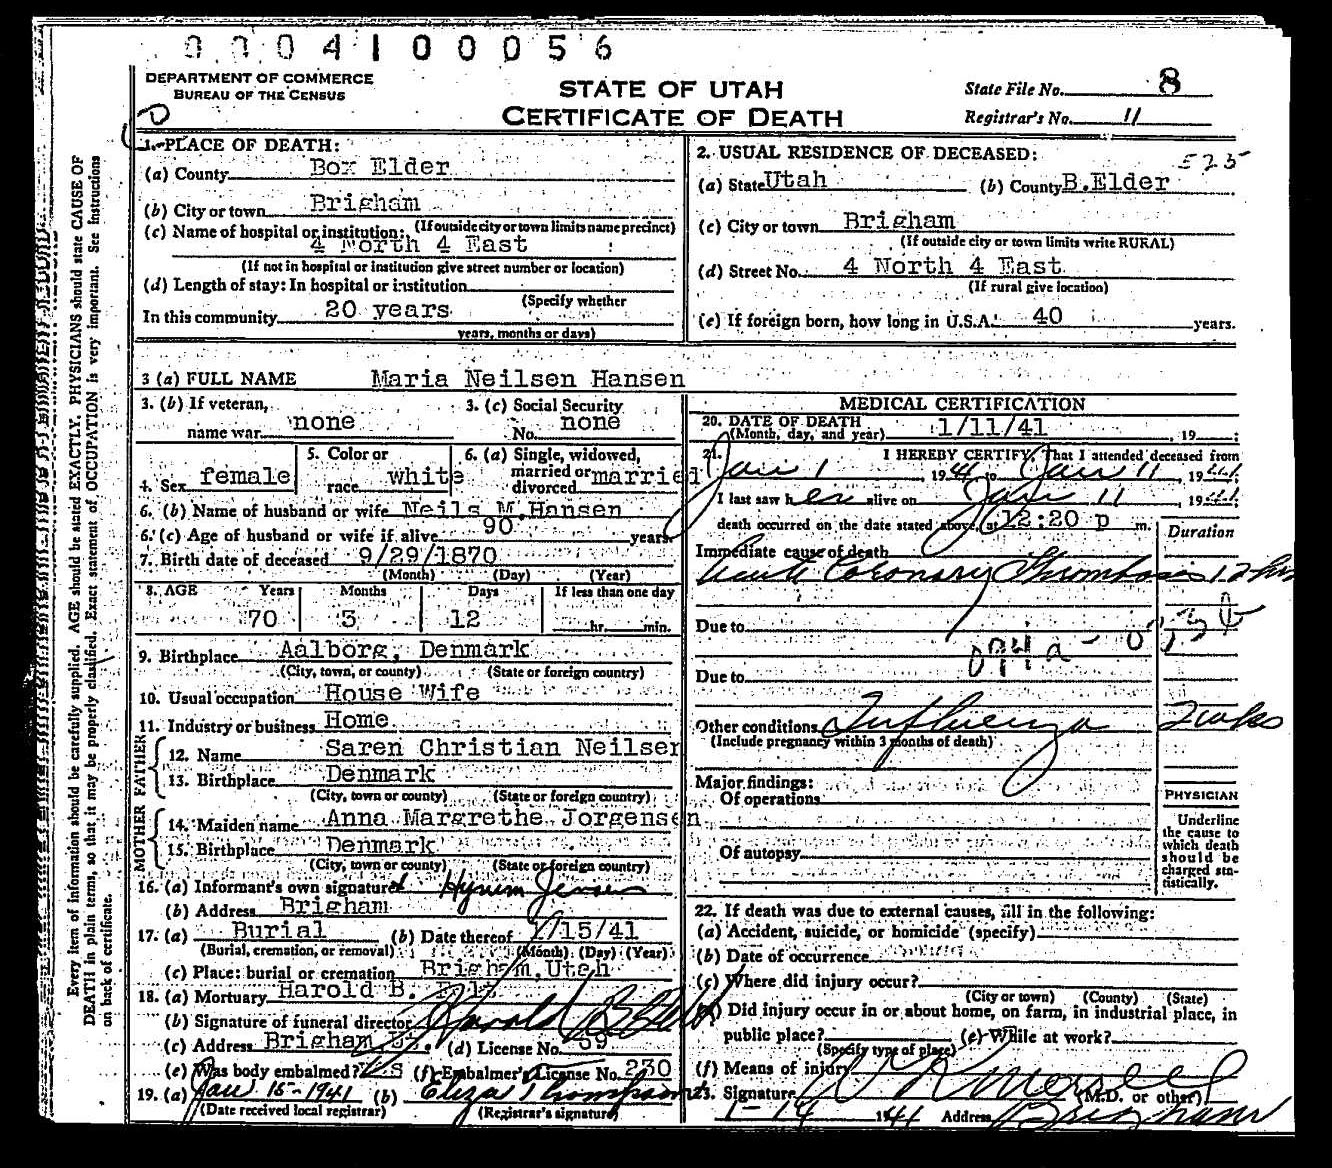 0004100056
DEPARTMENT OF COMMERCE
BUREAU OF THE CENSUS
STATE OF UTAH
CERTIFICATE OF DEATH
State File No. 8
Registrar's No. 11
Every item of information should be carefully supplied. AGE should be stated EXACTLY. PHYSICIANS should state CAUSE OF
DEATH in plain terms, so that it may be properly classified. Exact statement of OCCUPATION is very important. See instructions
on back of certificate.
1. PLACE OF DEATH:
(a) County Box Elder
(b) City or town Brigham
(If outside city or town limits name precinct)
(c) Name of hospital or institution:
4 North 4 East
(If not in hospital or institution give street number or location)
(d) Length of stay: In hospital or institution
(Specify whether
In this community 20 years
years, months or days)
2. USUAL RESIDENCE OF DECEASED: 525
(a) State Utah (b) County B.Elder
(c) City or town Brigham
(If outside city or town limits write RURAL)
(d) Street No. 4 North 4 East
(If rural give location)
(e) If foreign born, how long in U.S.A. 40 years.
3 (a) FULL NAME Maria Neilsen Hansen
3. (b) If veteran,
name war none
3. (c) Social Security
No. none
4. Sex female
5. Color or
race white
6. (a) Single, widowed,
married or
divorced married
6. (b) Name of husband or wife Neils M.Hansen
6. (c) Age of husband or wife if alive 90 years
7. Birth date of deceased 9/29/1870
(Month) (Day) (Year)
8. AGE Years Months Days If less than one day
70 3 12 hr. min.
9. Birthplace Aalborg, Denmark
(City, town, or county) (State or foreign country)
10. Usual occupation House Wife
11. Industry or business Home
FATHER
12. Name Saren Christian Neilsen
13. Birthplace Denmark
(City, town or county) (State or foreign country)
MOTHER
14. Maiden name Anna Margrethe Jorgensen
15. Birthplace Denmark
(City, town or county) (State or foreign country)
16. (a) Informant's own signature Hyrum Jensen
(b) Address Brigham
17. (a) Burial (b) Date thereof 1/15/41
(Burial, cremation, or removal) (Month) (Day) (Year)
(c) Place: burial or cremation Brigham, Utah
18. (a) Mortuary Harold B. Felt
(b) Signature of funeral director Harold B Felt
(c) Address Brigham Ut. (d) License No. 69
(e) Was body embalmed? Yes (f) Embalmer's License No. 230
19. (a) Jan 15-1941 (b) Eliza Thompson
(Date received local registrar) (Registrar's signature)
MEDICAL CERTIFICATION
20. DATE OF DEATH
(Month, day, and year) 1/11/41, 19
21. I HEREBY CERTIFY, That I attended deceased from
Jan 1 1941 to Jan 11, 1941
I last saw her alive on Jan 11 1941
death occurred on the date stated above, at 12:20 p m.
Duration
Immediate cause of death
Acute Coronary Thrombosis 12 hrs
Due to
094a
Due to
Other conditions Influenza 2 wks
(Include pregnancy within 3 months of death)
Major findings:
Of operations
Of autopsy
PHYSICIAN
Underline
the cause to
which death
should be
charged sta-
tistically.
22. If death was due to external causes, fill in the following:
(a) Accident, suicide, or homicide (specify)
(b) Date of occurrence
(c) Where did injury occur?
(City or town) (County) (State)
(d) Did injury occur in or about home, on farm, in industrial place, in
public place? (e) While at work?
(Specify type of place)
(f) Means of injury
23. Signature W R Merrell
(M.D. or other)
1-14 1941 Address Brigham